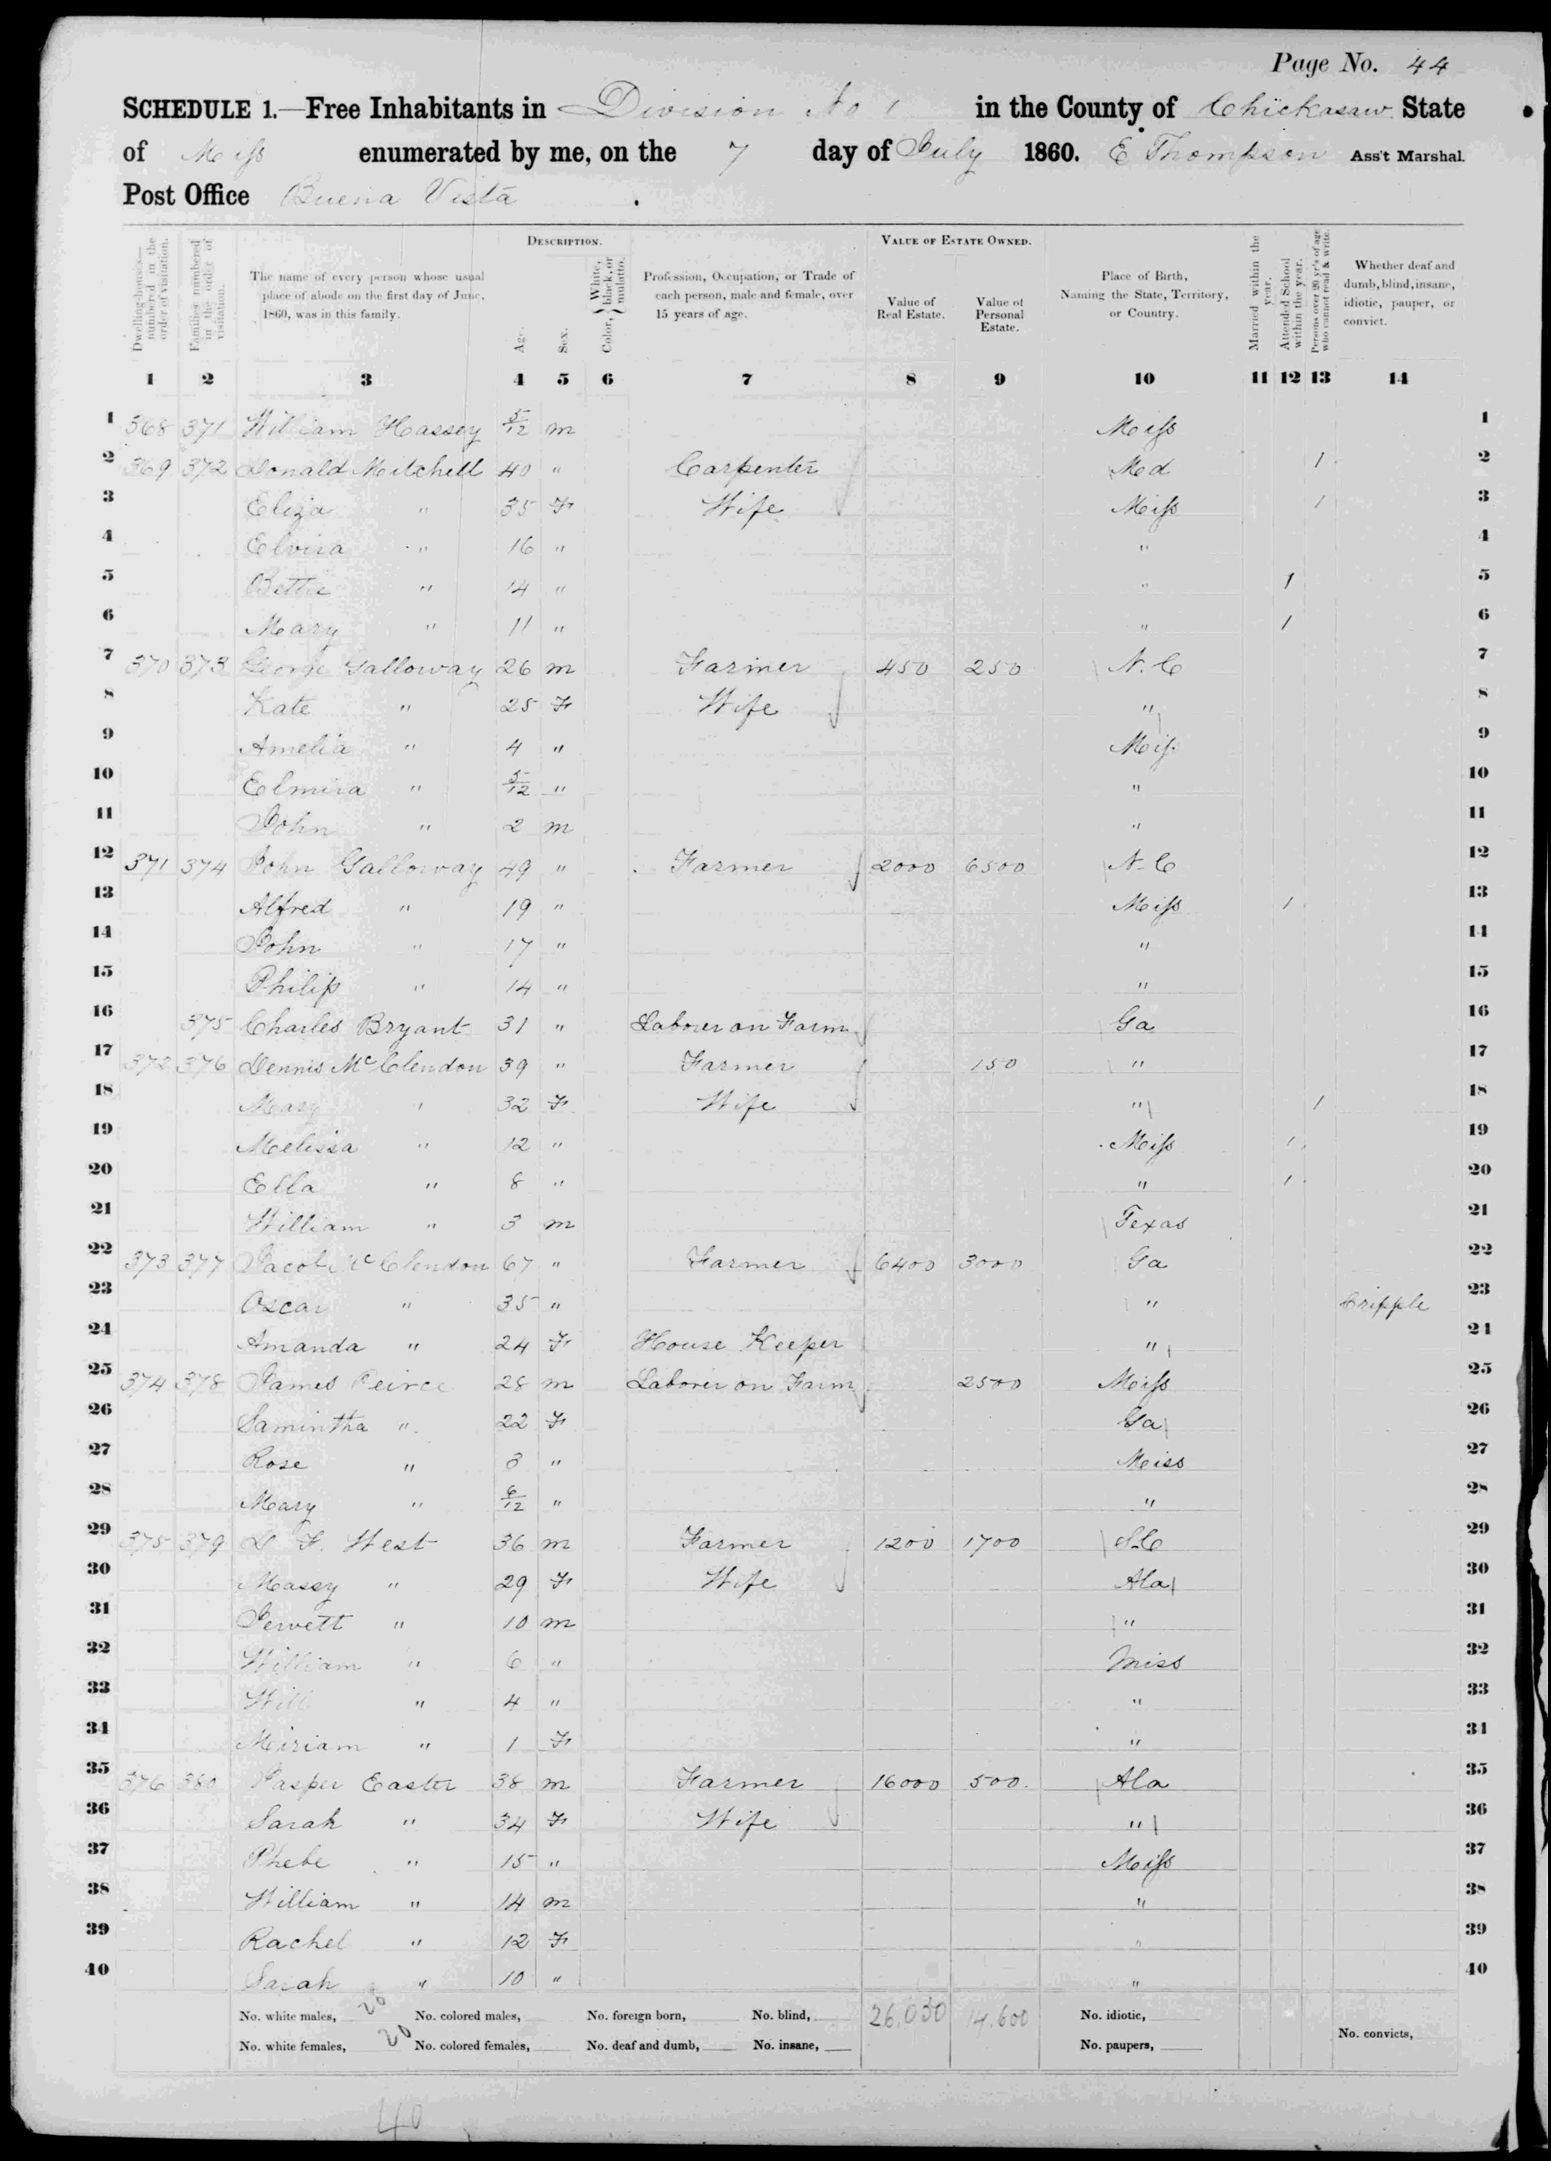 Page No. 44
SCHEDULE 1.—Free Inhabitants in Division No 1 in the County of Chickasaw State
of Miss enumerated by me, on the 7 day of July 1860. E Thompson Ass't Marshal.
Post Office Buena Vista
DESCRIPTION. VALUE OF ESTATE OWNED.
Dwelling-houses—numbered in the order of visitation.
Families numbered in the order of visitation.
The name of every person whose usual place of abode on the first day of June, 1860, was in this family.
Age.
Sex.
Color, { White, black, or mulatto.
Profession, Occupation, or Trade of each person, male and female, over 15 years of age.
Value of Real Estate.
Value of Personal Estate.
Place of Birth, Naming the State, Territory, or Country.
Married within the year.
Attended School within the year.
Persons over 20 yr's of age who cannot read & write.
Whether deaf and dumb, blind, insane, idiotic, pauper, or convict.
1 2 3 4 5 6 7 8 9 10 11 12 13 14
1 368 371 William Hassey 5/12 m Miss 1
2 369 372 Donald Mitchell 40 " Carpenter Md 1 2
3 Eliza " 35 F Wife Miss 1 3
4 Elvira " 16 " " 4
5 Bettie " 14 " " 1 5
6 Mary " 11 " " 1 6
7 370 373 George Galloway 26 m Farmer 450 250 N.C 7
8 Kate " 25 F Wife " 8
9 Amelia " 4 " Miss 9
10 Elmira " 5/12 " " 10
11 John " 2 m " 11
12 371 374 John Galloway 49 " Farmer 2000 6500 N.C 12
13 Alfred " 19 " Miss 1 13
14 John " 17 " " 14
15 Philip " 14 " " 15
16 375 Charles Bryant 31 " Laborer on Farm Ga 16
17 372 376 Dennis McClendon 39 " Farmer 150 " 17
18 Mary " 32 F Wife " 1 18
19 Melissa " 12 " Miss 1 19
20 Ella " 8 " " 1 20
21 William " 3 m Texas 21
22 373 377 Jacob McClendon 67 " Farmer 6400 3000 Ga 22
23 Oscar " 35 " " Cripple 23
24 Amanda " 24 F House Keeper " 24
25 374 378 James Peirce 28 m Laborer on Farm 2500 Miss 25
26 Samintha " 22 F Ga 26
27 Rose " 3 " Miss 27
28 Mary " 6/12 " " 28
29 375 379 F. West 36 m Farmer 1200 1700 S.C 29
30 Massy " 29 F Wife Ala 30
31 Jewett " 10 m " 31
32 William " 6 " Miss 32
33 Will " 4 " " 33
34 Miriam " 1 F " 34
35 376 380 Jasper Easter 38 m Farmer 16000 500 Ala 35
36 Sarah " 34 F Wife " 36
37 Phebe " 15 " Miss 37
38 William " 14 m " 38
39 Rachel " 12 F " 39
40 Sarah " 10 " " 40
No. white males, 20 No. colored males, No. foreign born, No. blind, 26,050 14,600 No. idiotic,
No. white females, 20 No. colored females, No. deaf and dumb, No. insane, No. paupers, No. convicts,
40